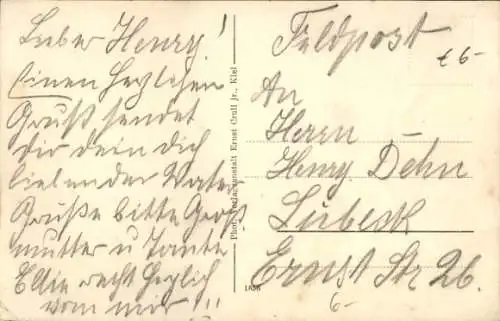 Lieber Henry!
Einen herzlichen
Gruß sendet
dir dein dich
liebender Vater
Grüße bitte Groß
mutter u Tante
Ella recht herzlich
von mir!!
Photogr. Kunstanstalt Ernst Grull jr., Kiel
1856
Feldpost
£ 6-
An
Herrn
Henry Dehn
Lübeck
Ernst Str 26.
6-